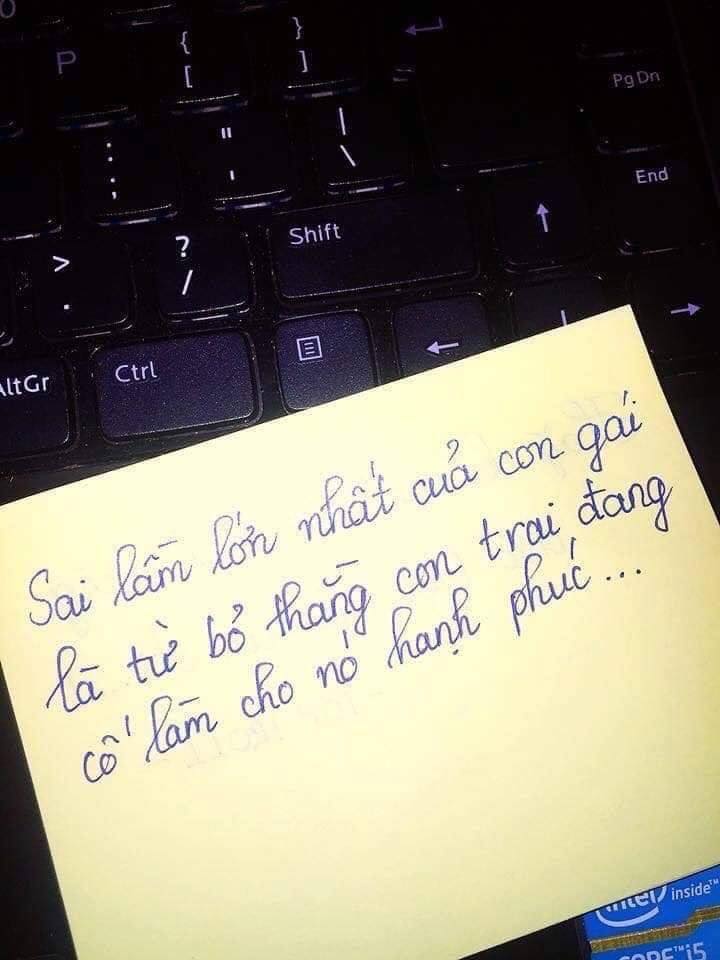 O
P
{
[
}
]
Pg Dn
:
;
"
'
|
\
End
>
.
?
/
Shift
AltGr
Ctrl
Sai lầm lớn nhất của con gái
là từ bỏ thằng con trai đang
cố làm cho nó hạnh phúc...
intel inside™
CORE™ i5